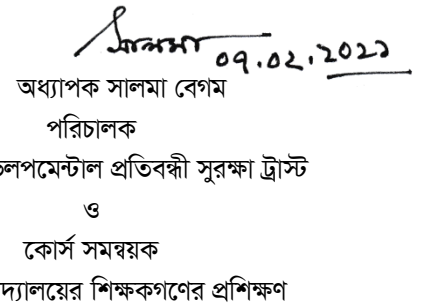 সালমা ০৭.০২.২০২১
অধ্যাপক সালমা বেগম
পরিচালক
লপমেন্টাল প্রতিবন্ধী সুরক্ষা ট্রাস্ট
ও
কোর্স সমন্বয়ক
দ্যালয়ের শিক্ষকগণের প্রশিক্ষণ